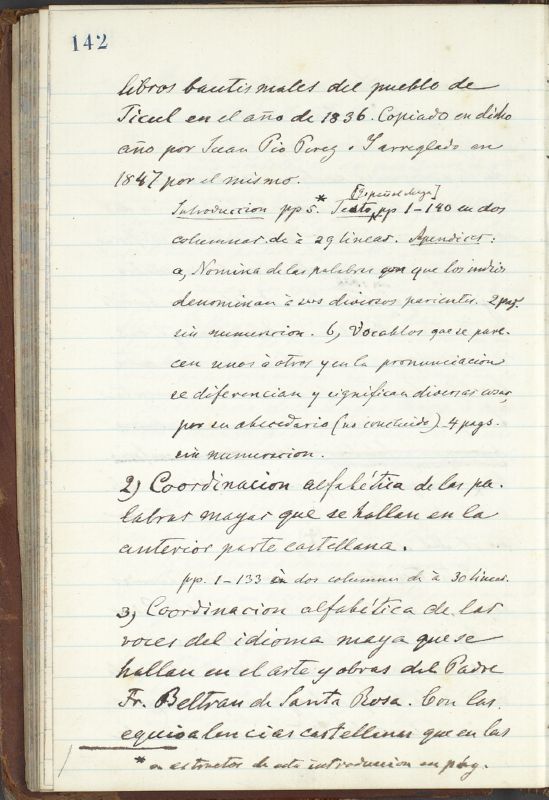 142
libros bautismales del pueblo de
Ticul en el año de 1836. Copiado en dicho
año por Juan Pio Perez. Y arreglado en
1847 por el mismo.
[Español Maya]
Introduccion pp 5.* Texto, pp 1-140 en dos
columnas de à 29 lineas. Apendices:
a, Nomina de las palabras con que los indios
denominan à sus diversos parientes. 2 pag.
sin numeracion. b, Vocablos que se pare-
cen unos à otros y en la pronunciacion
se diferencian y significan diversas cosas,
por su abecedario (no concluido). 4 pags.
sin numeracion.
2) Coordinacion alfabética de las pa-
labras mayas que se hallan en la
anterior parte castellana.
pp. 1-133 en dos columnas de à 30 lineas.
3) Coordinacion alfabética de las
voces del idioma maya que se
hallan en el arte y obras del Padre
Fr. Beltran de Santa Rosa. Con las
equivalencias castellanas que en las
* en estractos de esta introduccion en pág.